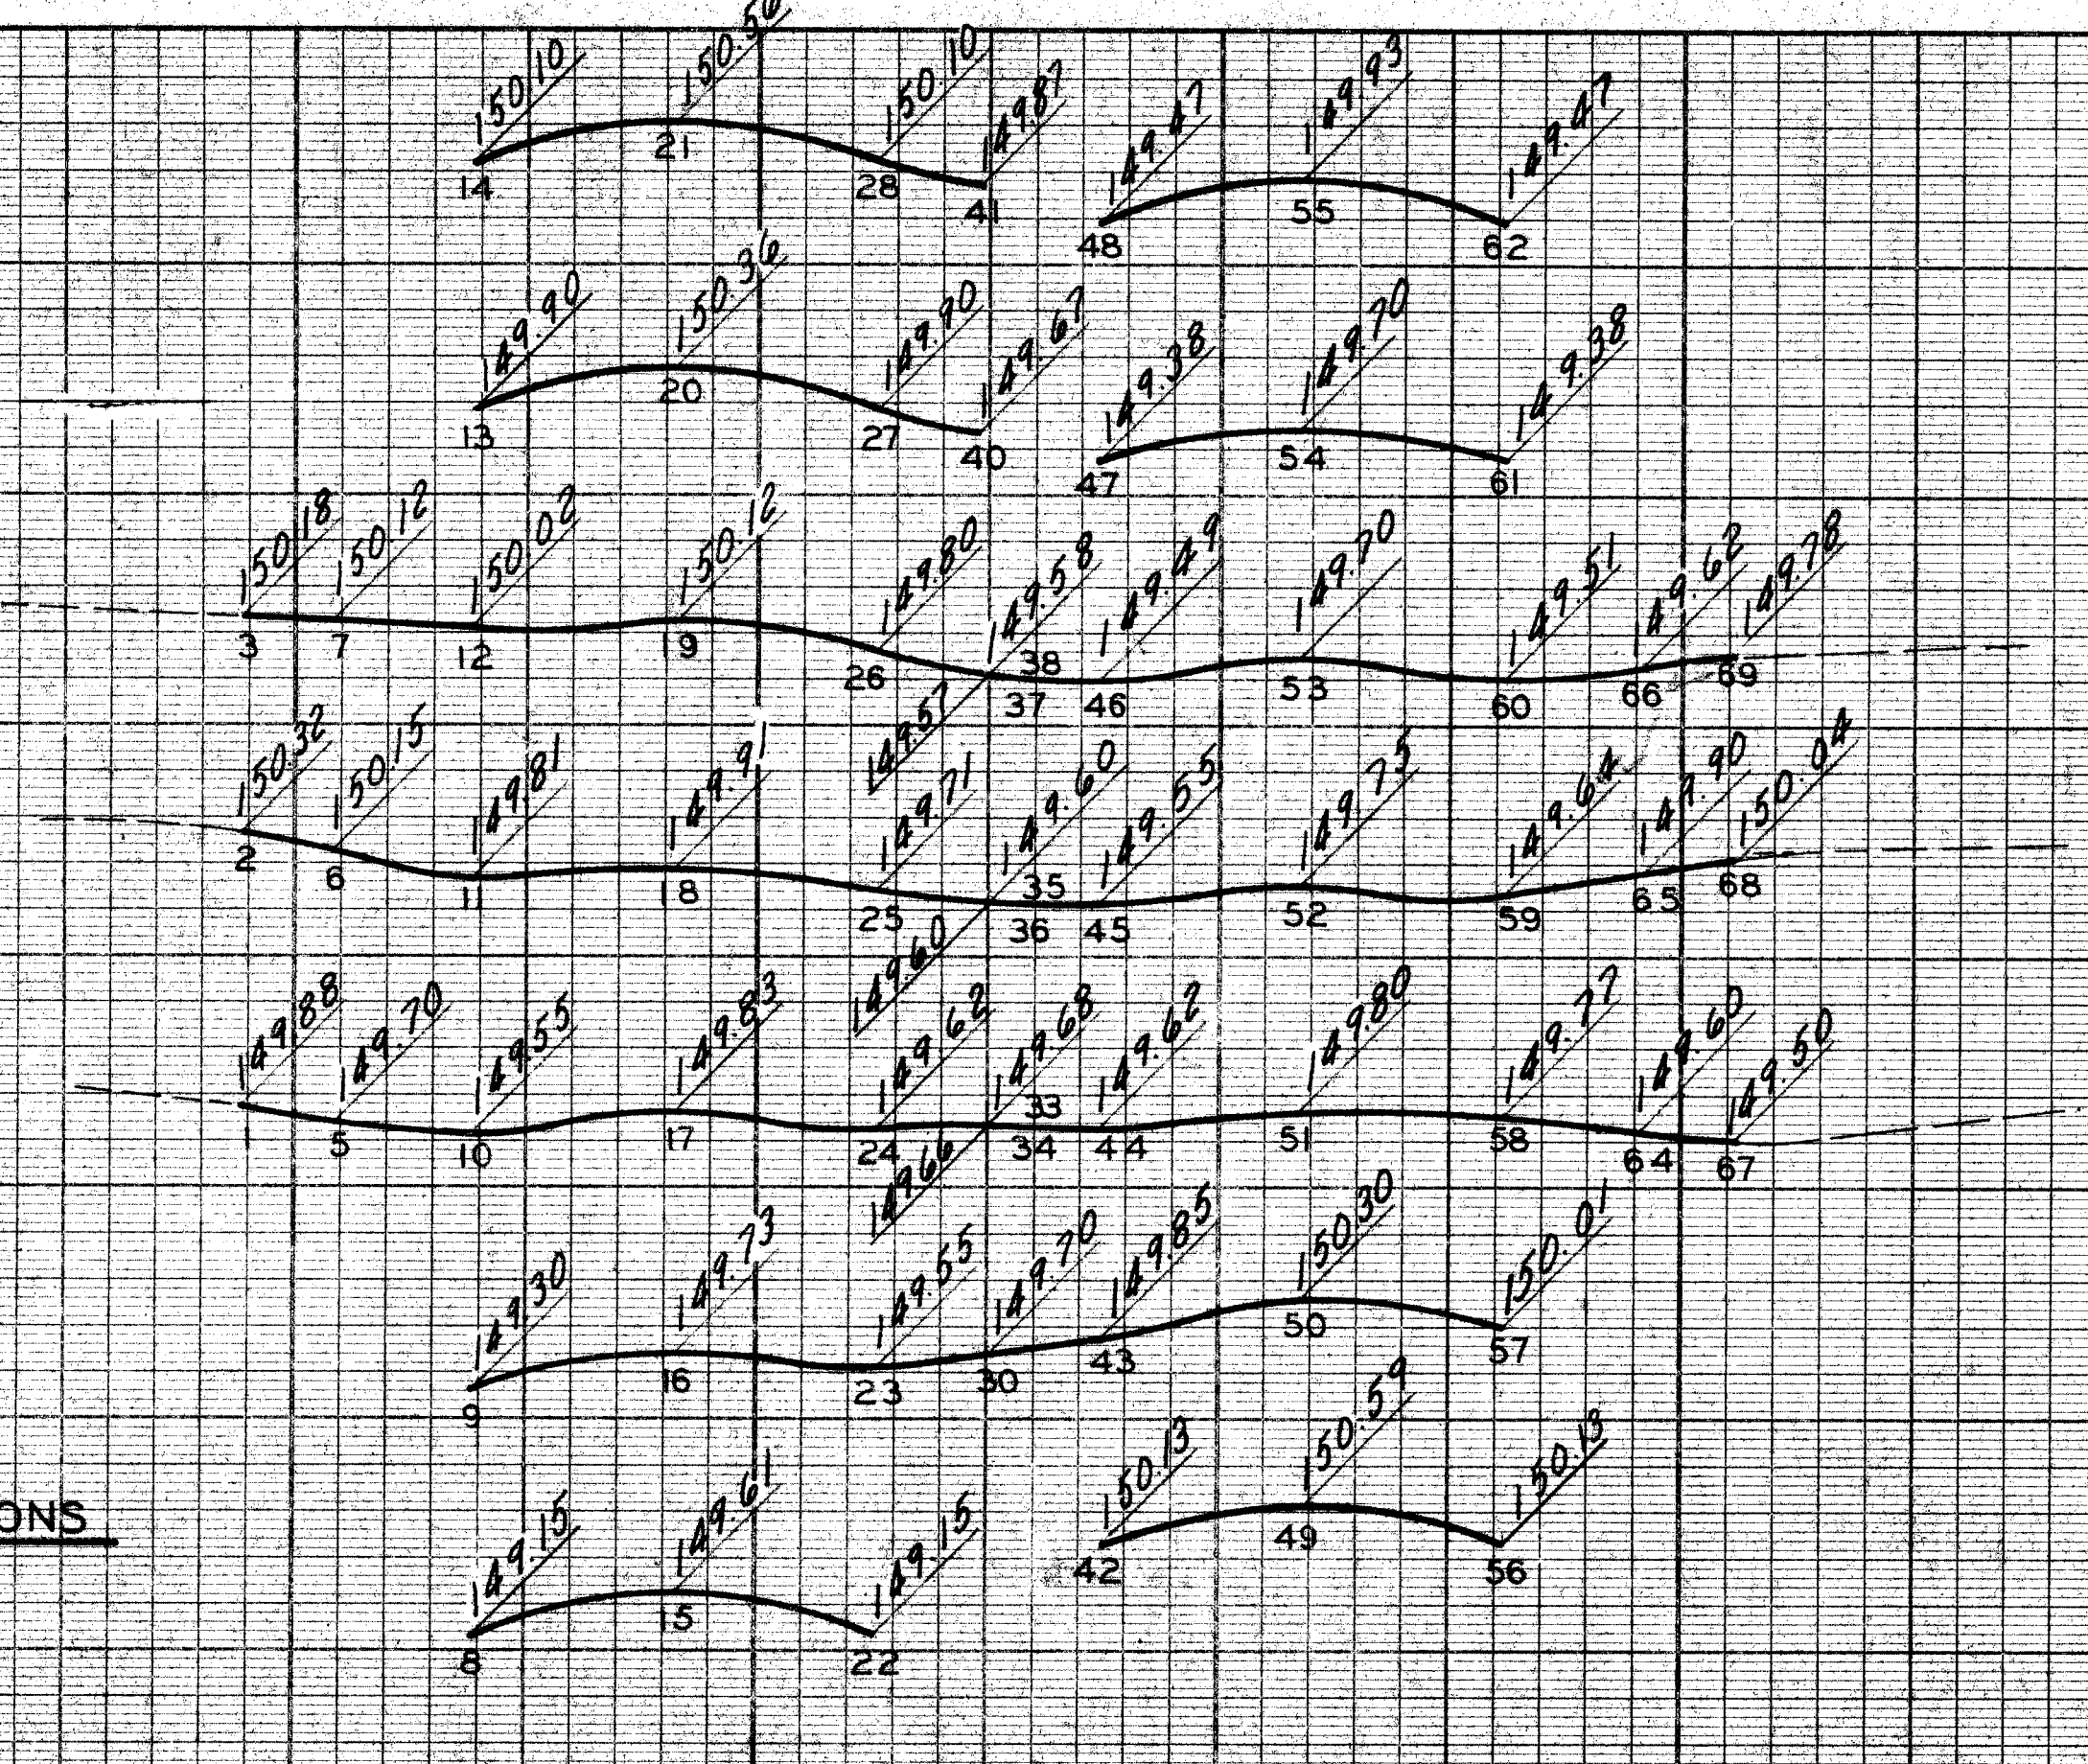 150.10 150.56 150.10 149.87 149.47 149.93 149.47
14 21 28 41 48 55 62
149.90 150.36 149.90 149.67 149.38 149.70 149.38
13 20 27 40 47 54 61
150.18 150.12 150.02 150.12 149.80 149.58 149.49 149.70 149.51 149.62 149.78
3 7 12 19 26 38 37 46 53 60 66 69
149.57
150.32 150.15 149.81 149.91 149.71 149.60 149.55 149.75 149.64 149.90 150.04
2 6 11 18 25 35 36 45 52 59 65 68
149.60
149.88 149.70 149.55 149.83 149.62 149.68 149.62 149.80 149.77 149.60 149.50
1 5 10 17 24 33 34 44 51 58 64 67
149.66
149.30 149.73 149.55 149.70 149.85 150.30 150.01
9 16 23 30 43 50 57
150.13 150.59 150.13
42 49 56
ONS
149.15 149.61 149.15
8 15 22